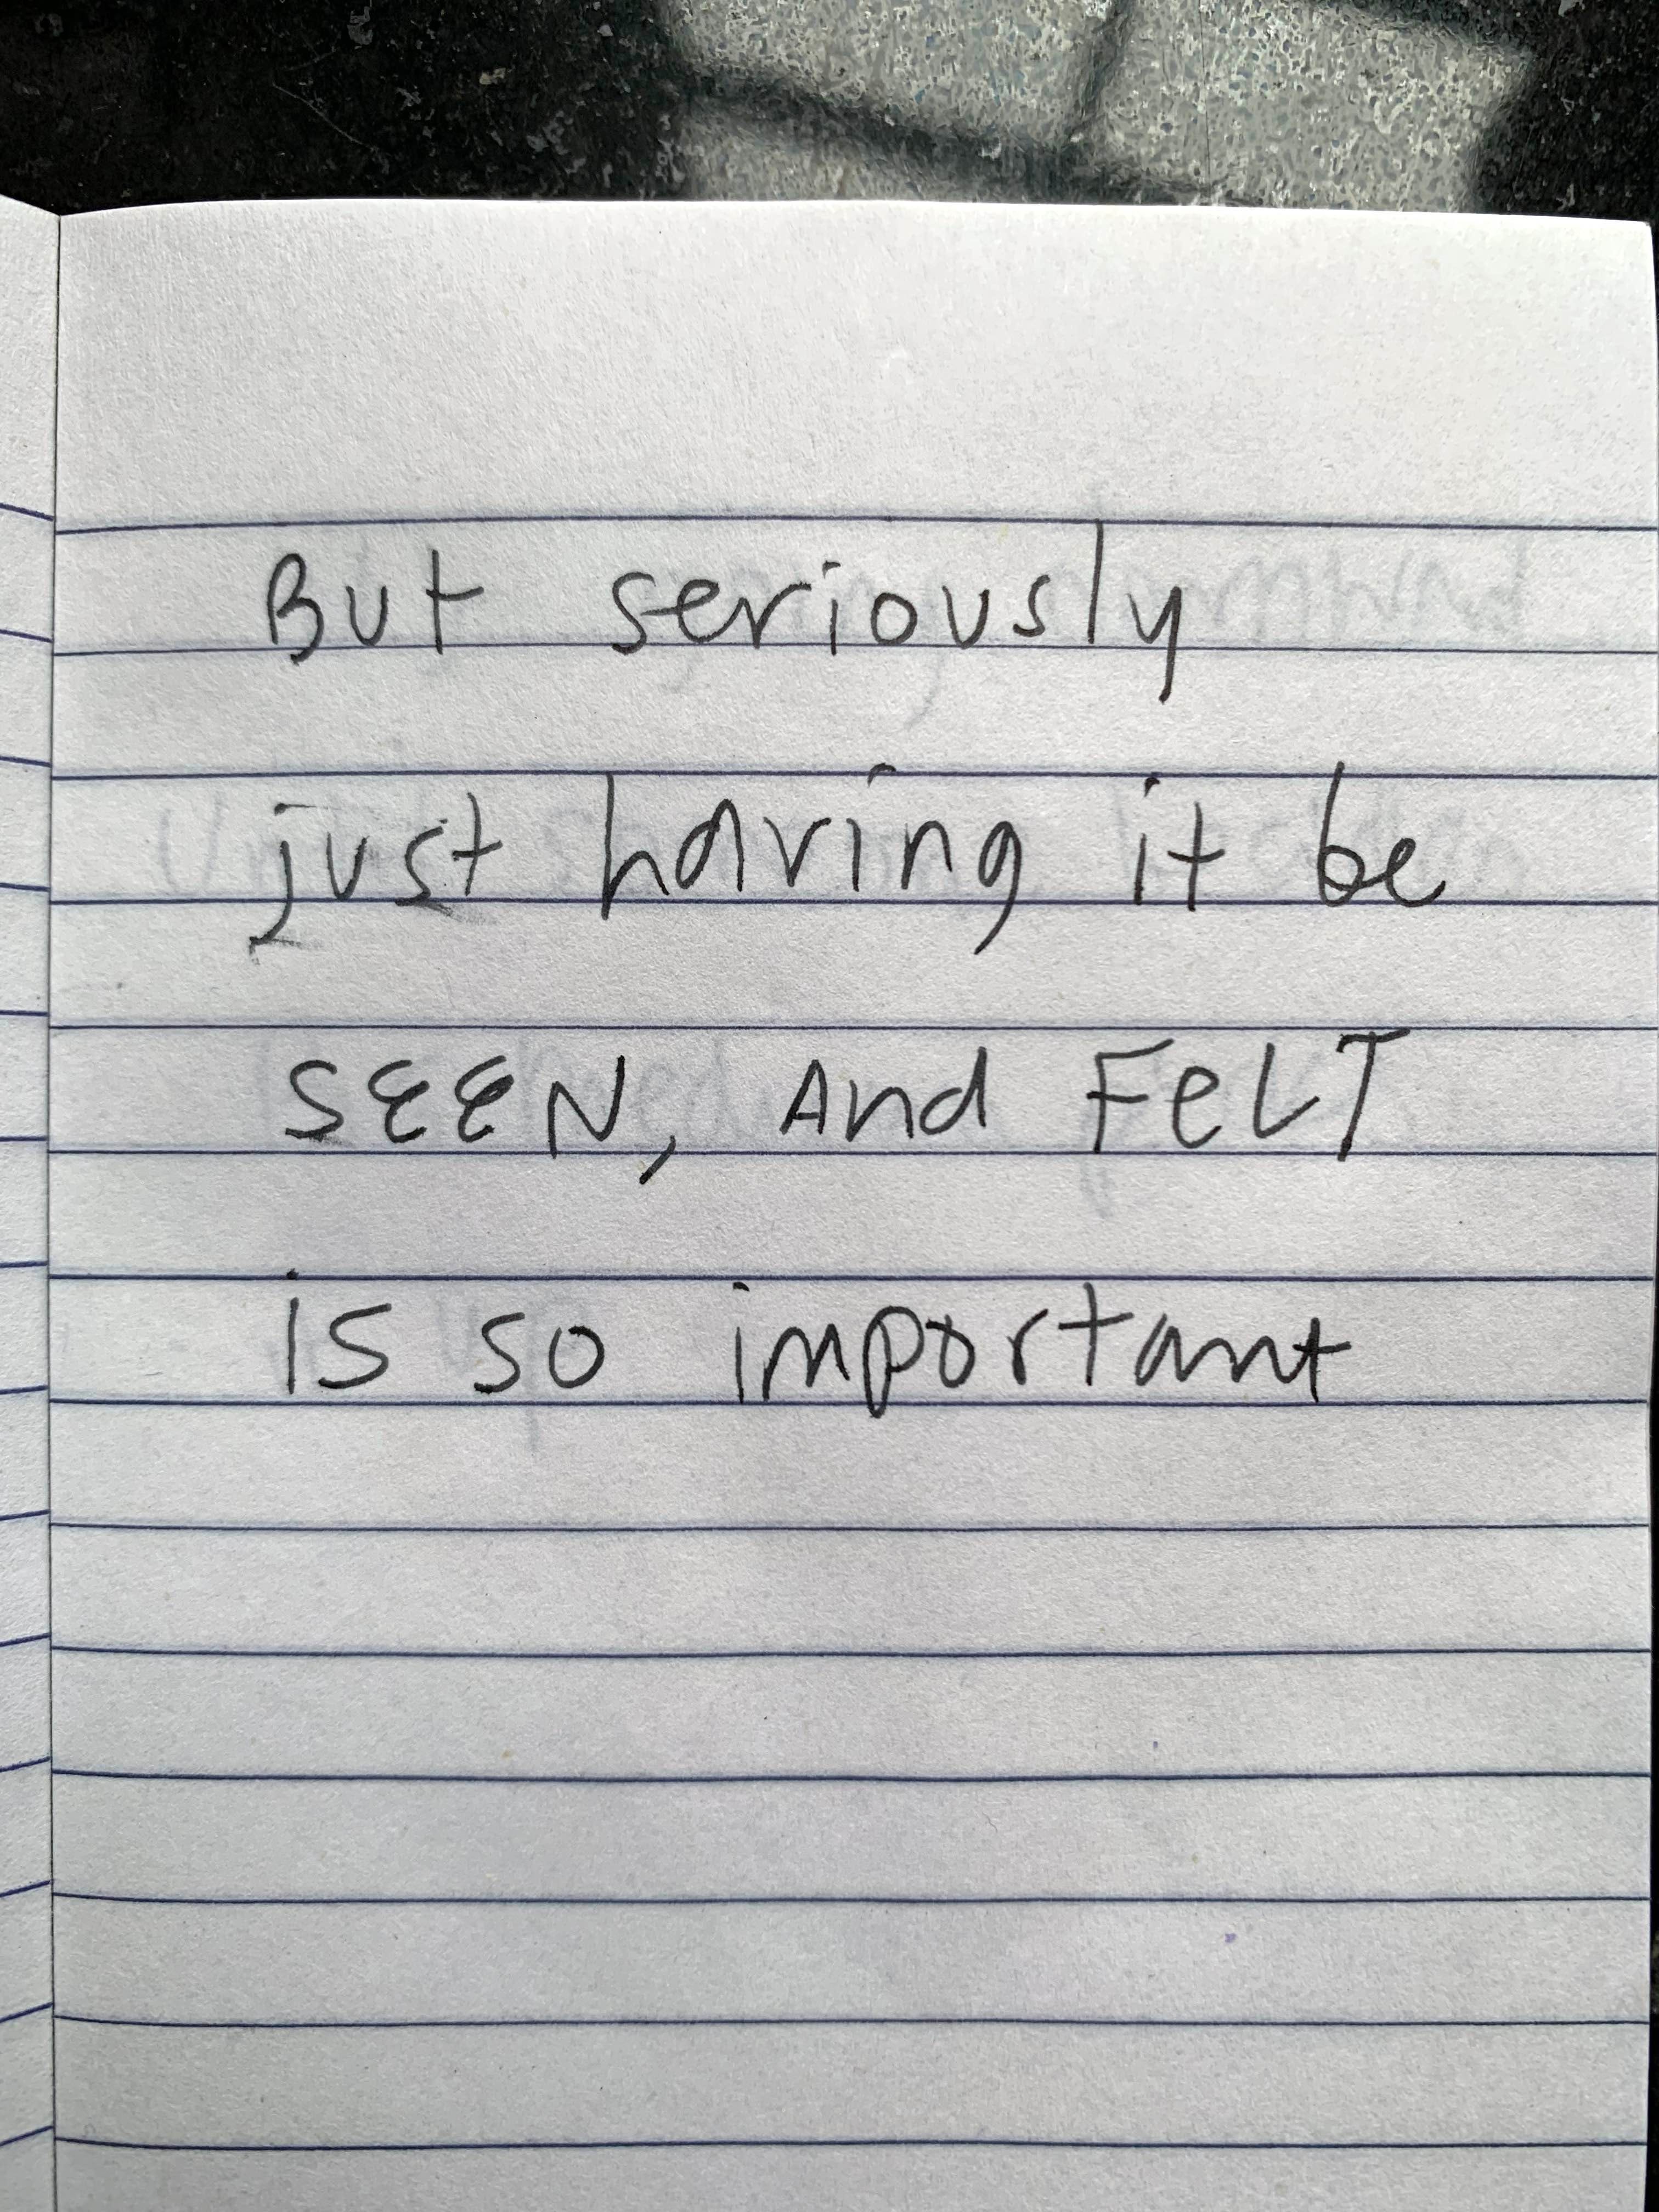 But seriously
just having it be
SEEN, And FeLT
is so important